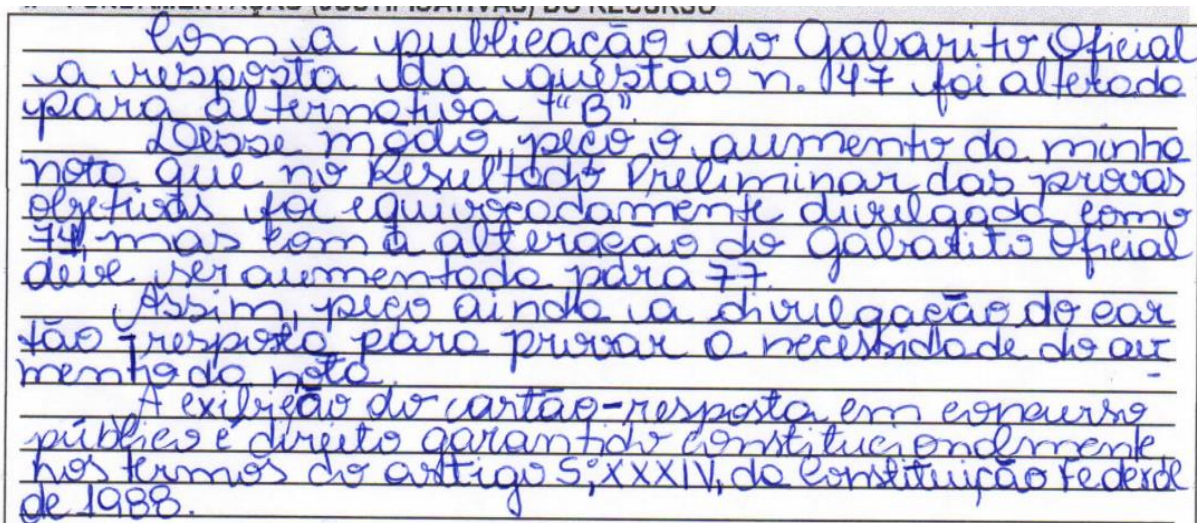 II - FUNDAMENTAÇÃO (JUSTIFICATIVAS) DO RECURSO
Com a publicação do Gabarito Oficial
a resposta da questão n. 47 foi alterada
para alternativa "B".
Desse modo, peço o aumento da minha
nota que no Resultado Preliminar das provas
objetivas foi equivocadamente divulgada como
74, mas com a alteração do Gabarito Oficial
deve ser aumentada para 77.
Assim, peço ainda a divulgação do car
tão-resposta para provar a necessidade do au
mento da nota.
A exibição do cartão-resposta em concurso
público é direito garantido constitucionalmente,
nos termos do artigo 5º, XXXIV, da Constituição Federal
de 1988.